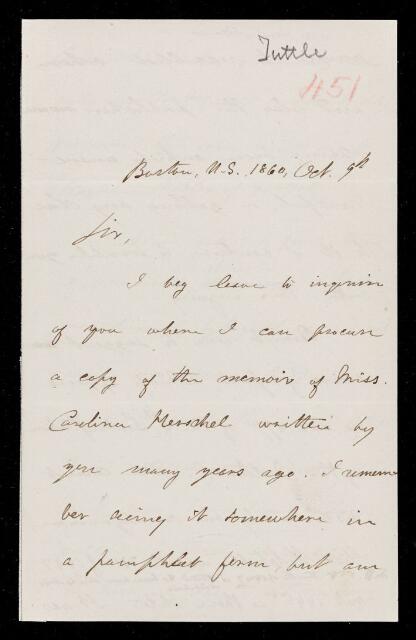 Tuttle
451
Boston, U.S. 1860, Oct. 9th
Sir,
I beg leave to inquire
of you where I can procure
a copy of the memoir of Miss.
Carolina Herschel written by
you many years ago. I remem
ber seeing it somewhere in
a pamphlet form, but am